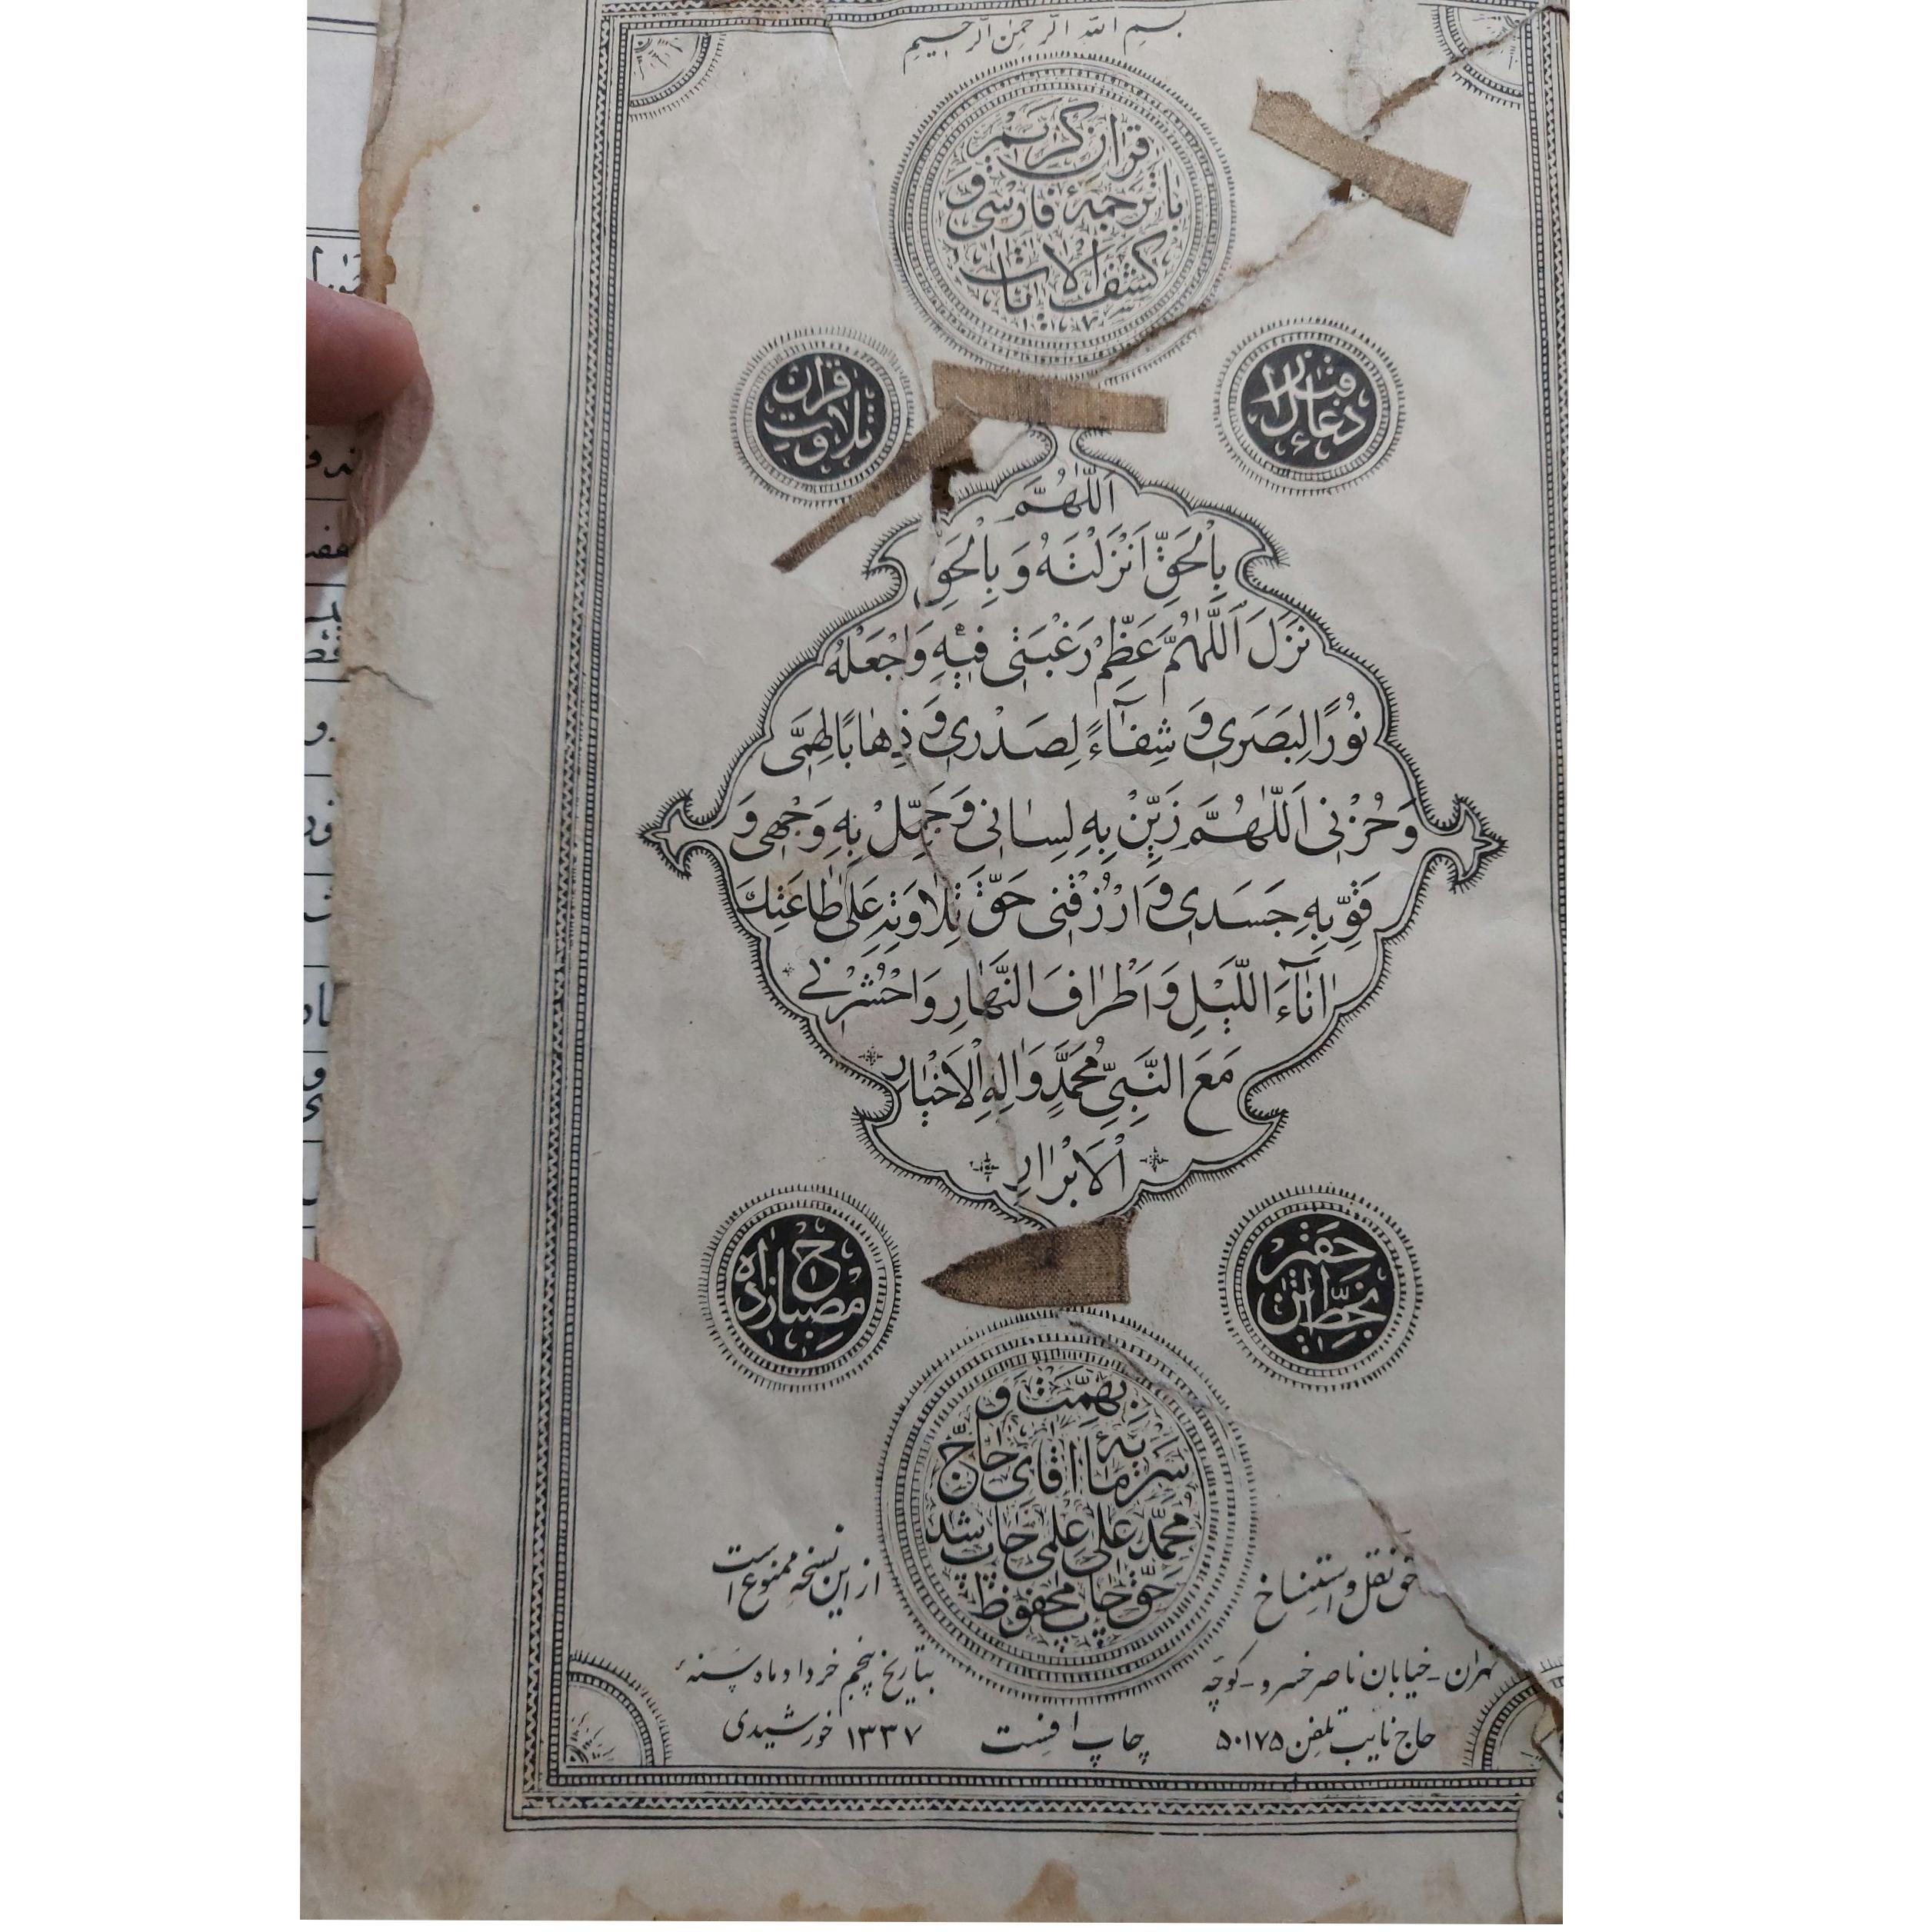 بسم الله الرحمن الرحیم
قرآن کریم
با ترجمهٔ فارسی و
کشف الآیات
دعای قبل از
تلاوت قرآن
اَللّهُمَّ
بِالْحَقِّ اَنْزَلْتَهُ وَ بِالْحَقِّ
نَزَلَ اَللّٰهُمَّ عَظِّمْ رَغْبَتی فیهِ وَاجْعَلْهُ
نُورًا لِبَصَری وَ شِفآءً لِصَدْری وَ ذِهابًا لِهَمّی
وَ حُزْنی اَللّٰهُمَّ زَیِّنْ بِهِ لِسانی وَ جَمِّلْ بِهِ وَجْهی وَ
قَوِّ بِهِ جَسَدی وَ ارْزُقْنی حَقَّ تِلاوَتِهِ عَلی طاعَتِكَ
انآءَ اللَّیْلِ وَ اَطْرافَ النَّهارِ وَ احْشُرْنی
مَعَ النَّبِیِّ مُحَمَّدٍ وَ الِهِ الْاَخْیارِ
الْاَبْرارِ
بخط این حقیر
ح مصباح زاده
بهمّت و
سرمایهٔ آقای حاجّ
محمّد علی علمی چاپ شد
حقّ چاپ محفوظ
حق نقل و استنساخ
از این نسخه ممنوع است
تهران - خیابان ناصر خسرو - کوچه
حاج نایب تلفن ۵۰۱۷۵
بتاریخ پنجم خرداد ماه سنهٔ
۱۳۳۷ خورشیدی
چاپ افست